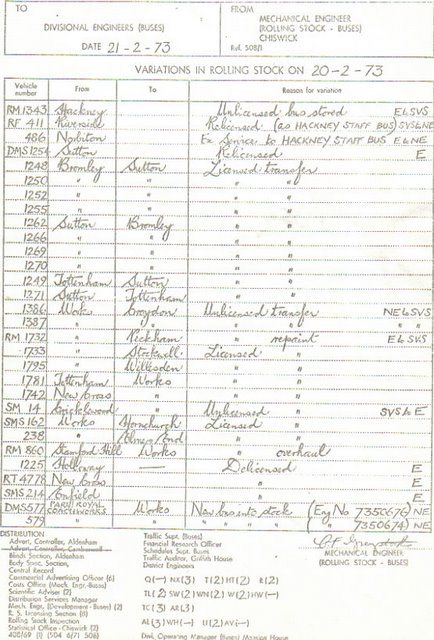 TO
DIVISIONAL ENGINEERS (BUSES)
DATE 21-2-73
FROM
MECHANICAL ENGINEER
(ROLLING STOCK - BUSES)
CHISWICK
Ref. 508/1
VARIATIONS IN ROLLING STOCK ON 20-2-73
Vehicle number From To Reason for variation
RM 1343 Hackney Unlicensed bus stored ELSVS
RF 411 Riverside Relicensed (as HACKNEY STAFF BUS) SVS&NE
486 Norbiton Ex Service to HACKNEY STAFF BUS E&NE
DMS 1254 Sutton Relicensed E
1248 Bromley Sutton Licensed transfer
1250 " " " "
1252 " " " "
1255 " " " "
1262 Sutton Bromley " "
1266 " " " "
1269 " " " "
1270 " " " "
1249 Tottenham Sutton " "
1271 Sutton Tottenham " "
1386 Works Croydon Unlicensed transfer NELSVS
1387 " " " "
RM 1732 " Peckham " repaint ELSVS
1733 " Stockwell Licensed "
1795 " Willesden " "
1781 Tottenham Works " "
1742 New Cross " " "
SM 14 Cricklewood " Unlicensed " SVS&E
SMS 162 Works Hornchurch Licensed "
238 " Elmers End " "
RM 860 Stamford Hill Works " overhaul
1225 Holloway — Delicensed E
RT 4778 New Cross " E
SMS 214 Enfield " E
DMS 577 PARK ROYAL COACHWORKS Works New bus into stock (Eng No 7350676) NE
579 " " " " " " " 7350674) NE
DISTRIBUTION
Advert. Controller, Aldenham
Advert. Controller, Camberwell
Blinds Section, Aldenham
Body Spec. Section,
Central Record
Commercial Advertising Officer (6)
Costs Office (Mech. Engr-Buses)
Scientific Adviser (2)
Distribution Services Manager
Mech. Engr. (Development - Buses) (2)
R. S. Licensing Section (8)
Rolling Stock Inspector
Statistical Office - Chiswick (2)
408/69 (1) (504 6/71 508)
Traffic Supt. (Buses)
Financial Research Officer
Schedules Supt. Buses
Traffic Auditor, Griffith House
District Engineers
Q(-) NX(3) T(2) HT(2) R(2)
TL(2) SW(2) WN(2) W(2) HW(-)
TC(3) AR(3)
AL(3) WH(-) U(2) AV(-)
Divl. Operating Manager (Buses) Mansion House
MECHANICAL ENGINEER
(ROLLING STOCK - BUSES)